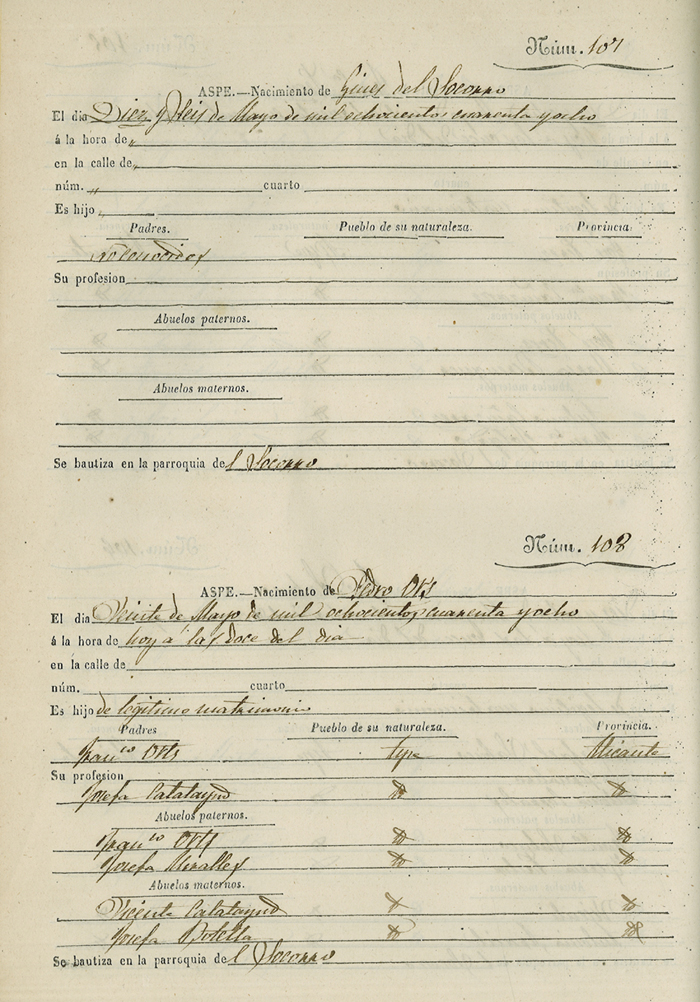 Núm. 107
ASPE.—Nacimiento de Gines del Socorro
El dia Diez y Seis de Mayo de mil ochocientos cuarenta y ocho
á la hora de „
en la calle de „
núm. „ cuarto
Es hijo „
Padres. Pueblo de su naturaleza. Provincia.
no conocidos
Su profesion
Abuelos paternos.
Abuelos maternos.
Se bautiza en la parroquia del Socorro
Núm. 108
ASPE.—Nacimiento de Pedro Orts
El dia Veinte de Mayo de mil ochocientos cuarenta y ocho
á la hora de hoy á las doce del dia
en la calle de
núm. cuarto
Es hijo de legitimo matrimonio
Padres Pueblo de su naturaleza. Provincia.
Franco Orts Aspe Alicante
Su profesion
Josefa Calatayud
Abuelos paternos.
Franco Orts
Josefa Miralles
Abuelos maternos.
Vicente Calatayud
Josefa Botella
Se bautiza en la parroquia del Socorro